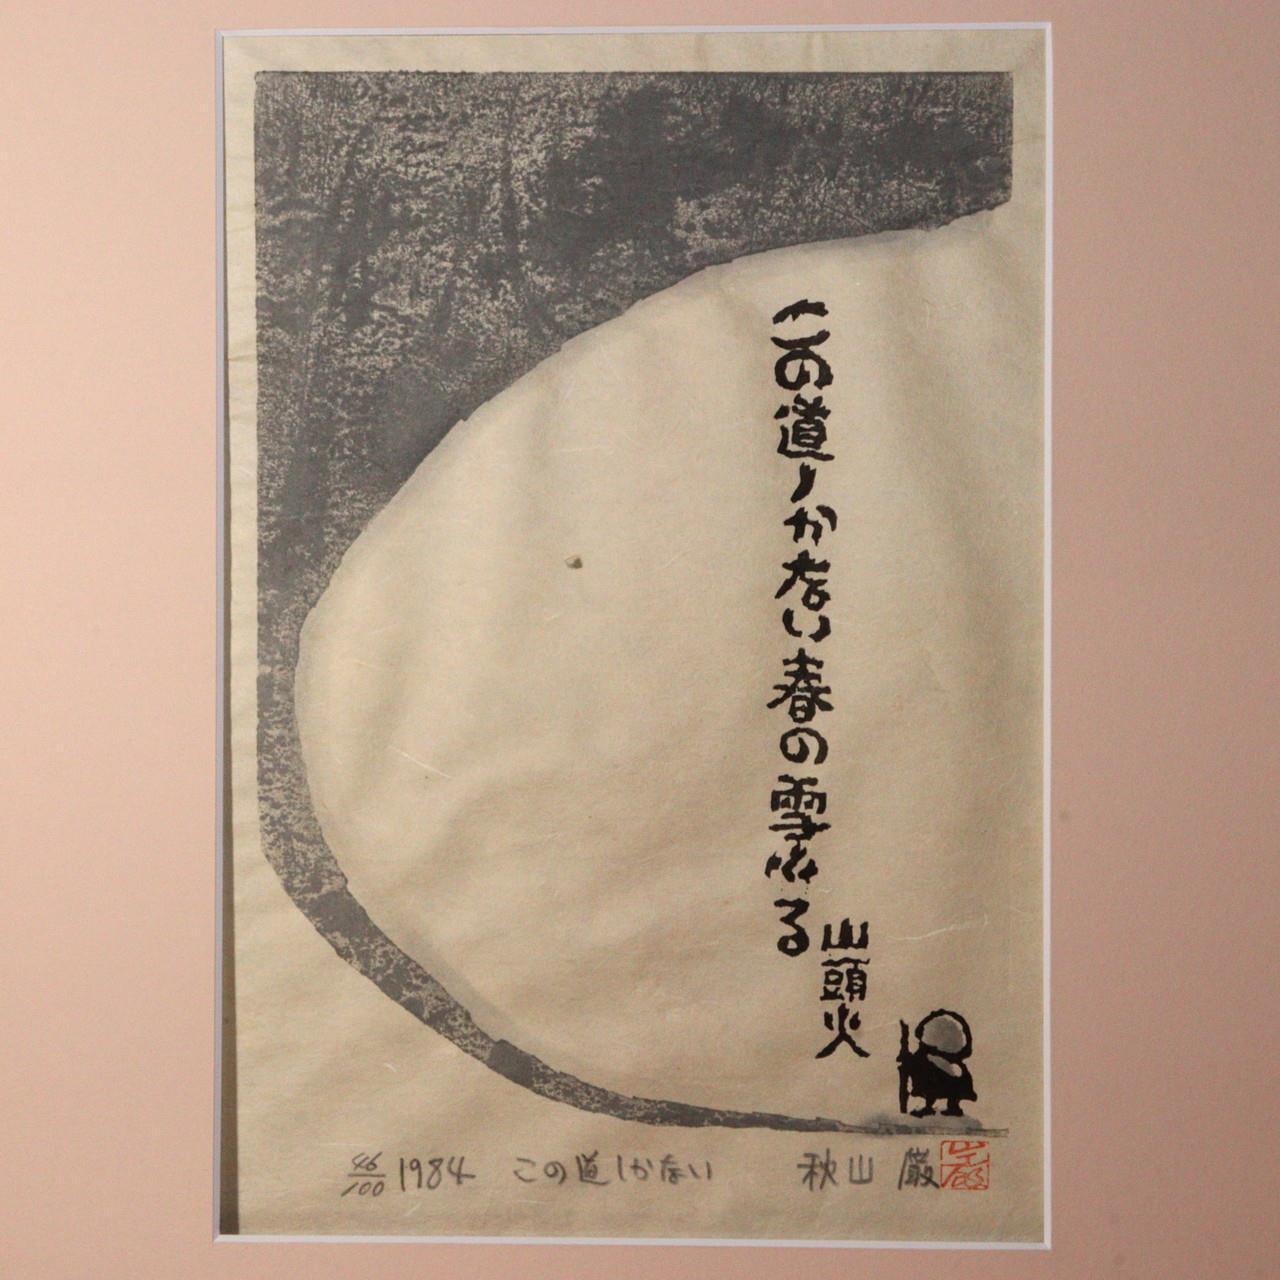 この道しかない春の雪ふる
山頭火
46/100 1984 この道しかない 秋山 巌